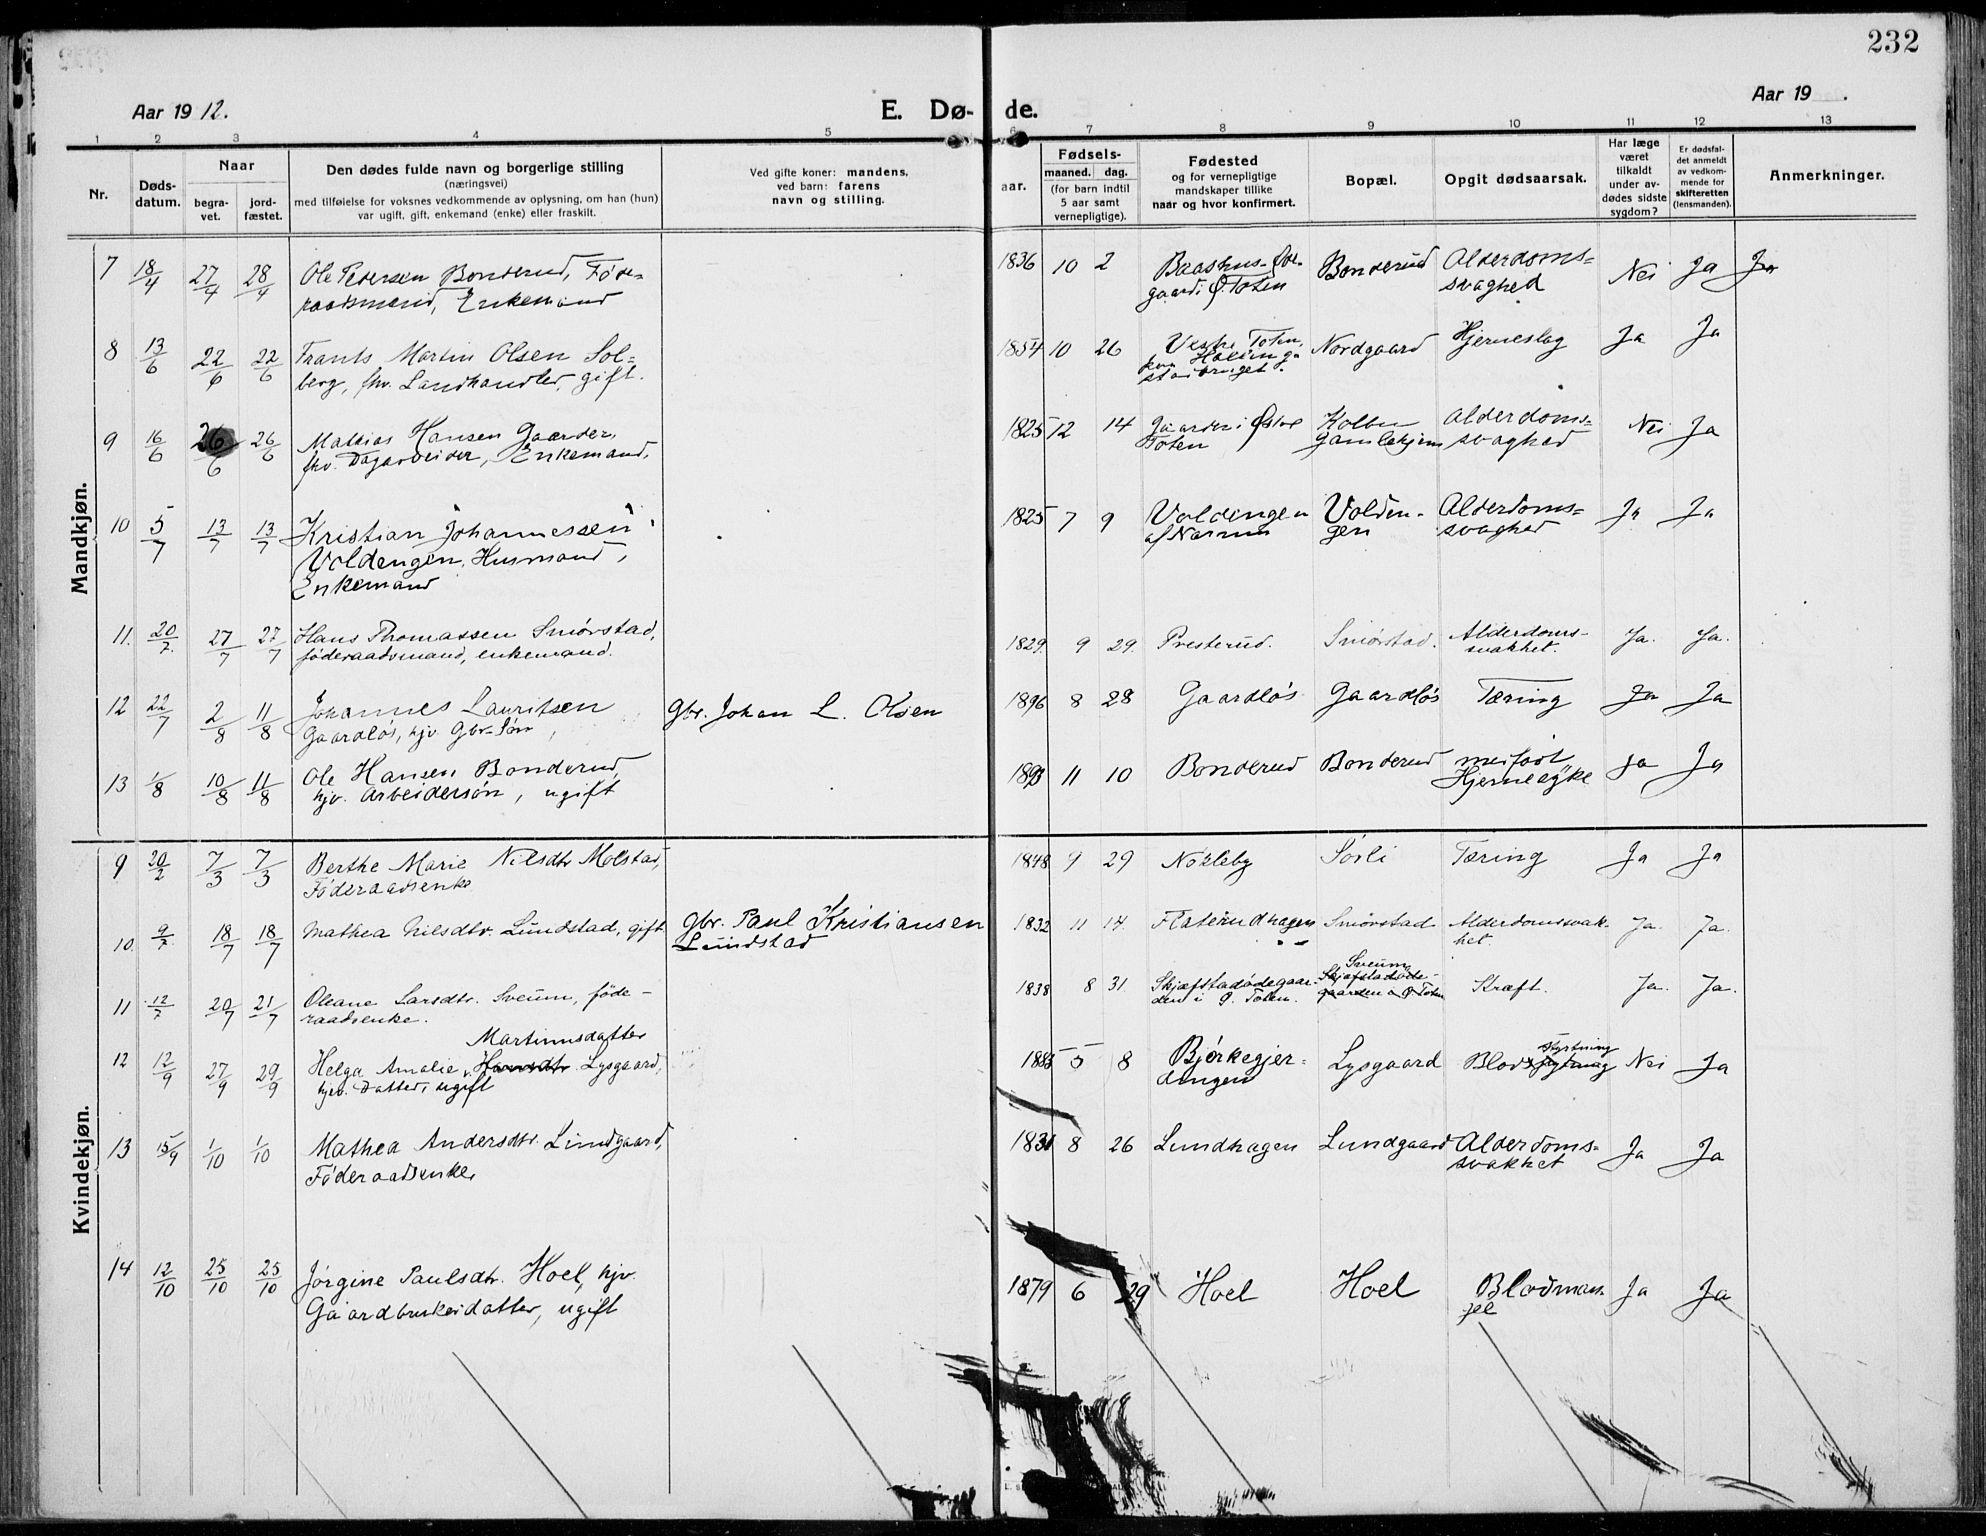 232
Aar 1912.
E. Dø-
de.
Aar 19 .
1 2 3 4 5 6 7 8 9 10 11 12 13
Nr.
Døds-
datum.
Naar
begra-
vet.
jord-
fæstet.
Den dødes fulde navn og borgerlige stilling
(næringsvei)
med tilføielse for voksnes vedkommende av oplysning, om han (hun)
var ugift, gift, enkemand (enke) eller fraskilt.
Ved gifte koner: mandens,
ved barn: farens
navn og stilling.
aar.
Fødsels-
maaned. dag.
(for barn indtil
5 aar samt
vernepligtige).
Fødested
og for vernepligtige
mandskaper tillike
naar og hvor konfirmert.
Bopæl.
Opgit dødsaarsak.
Har læge
været
tilkaldt
under av-
dødes sidste
sygdom?
Er dødsfal-
det anmeldt
av vedkom-
mende for
skifteretten
(lensmanden).
Anmerkninger.
Mandkjøn.
7 18/4 27/4 28/4 Ole Pedersen Bonderud, Føde-
raadsmand, Enkemand
1836 10 2 Baashus-Øde-
gaard i Ø. Toten Bonderud Alderdoms-
svaghed Nei Ja Ja
8 13/6 22/6 22/6 Frants Martin Olsen Sol-
berg, fhv. Landhandler, gift.
1854 10 26 Vestre Toten, Nordgaard Hjerneslag Ja Ja
9 16/6 26/6 26/6 Mathias Hansen Gaarder,
fhv. Dagarbeider, Enkemand,
1825 12 14 Gaarder i Østre
Toten Kolbu
Gamlehjem Alderdoms-
svaghed Nei Ja
10 5/7 13/7 13/7 Kristian Johannessen
Voldengen, Husmand,
Enkemand
1825 7 9 Voldengen
af Narum Volden-
gen Alderdoms-
svaghed Ja Ja
11. 20/7 27/7 27/7 Hans Thomassen Smørstad,
føderaadsmand, enkemand.
1829. 9 29. Presterud. Smørstad. Alderdoms-
svakhet. Ja. Ja.
12 22/7 2/8 11/8 Johannes Lauritsen
Gaardløs, hjv. Gbr. Søn,
Gbr. Johan L. Olsen
1896 8 28 Gaardløs Gaardløs Tæring Ja Ja
13 1/8 10/8 11/8 Ole Hansen Bonderud
hjv. Arbeidersøn, ugift
1893 11 10 Bonderud Bonderud medfødt
Hjernesyke Ja Ja
Kvindekjøn.
9 20/2 7/3 7/3 Berthe Marie Nilsdtr Molstad,
Føderaadsenke
1848 9 29 Nøkleby Sørli Tæring Ja Ja
10. 9/7 18/7 18/7 Mathea Nilsdtr. Lundstad, gift
Gbr. Paul Kristiansen
Lundstad
1832 11 14. Flaterudhagen Smørstad Alderdomssvak-
het. Ja. Ja.
11 12/7 20/7 21/7 Oleane Larsdtr. Sveum, føde-
raadsenke.
1838 8 31 Skjæfstadødegaar-
den i Ø. Toten. Sveum
Skjæfstadøde-
gaarden Ø Toten Kræft. Ja. Ja.
Martinusdatter
12 12/9 27/9 29/9 Helga Amalie Hansdtr Lysgaard,
hjv. Datter, ugift
1885 5 8 Bjørkegjer-
dingen Lysgaard styrtning
Blod Nei Ja
13 15/9 1/10 1/10 Mathea Andersdtr. Lundgaard,
Føderaadsenke,
1831 8 26 Lundhagen Lundgaard Alderdoms-
svakhet Ja Ja
14 12/10 25/10 25/10 Jørgine Paulsdtr. Hoel, hjv.
Gaardbrukerdatter, ugift
1879 6 29 Hoel Hoel Blodman-
gel Ja Ja